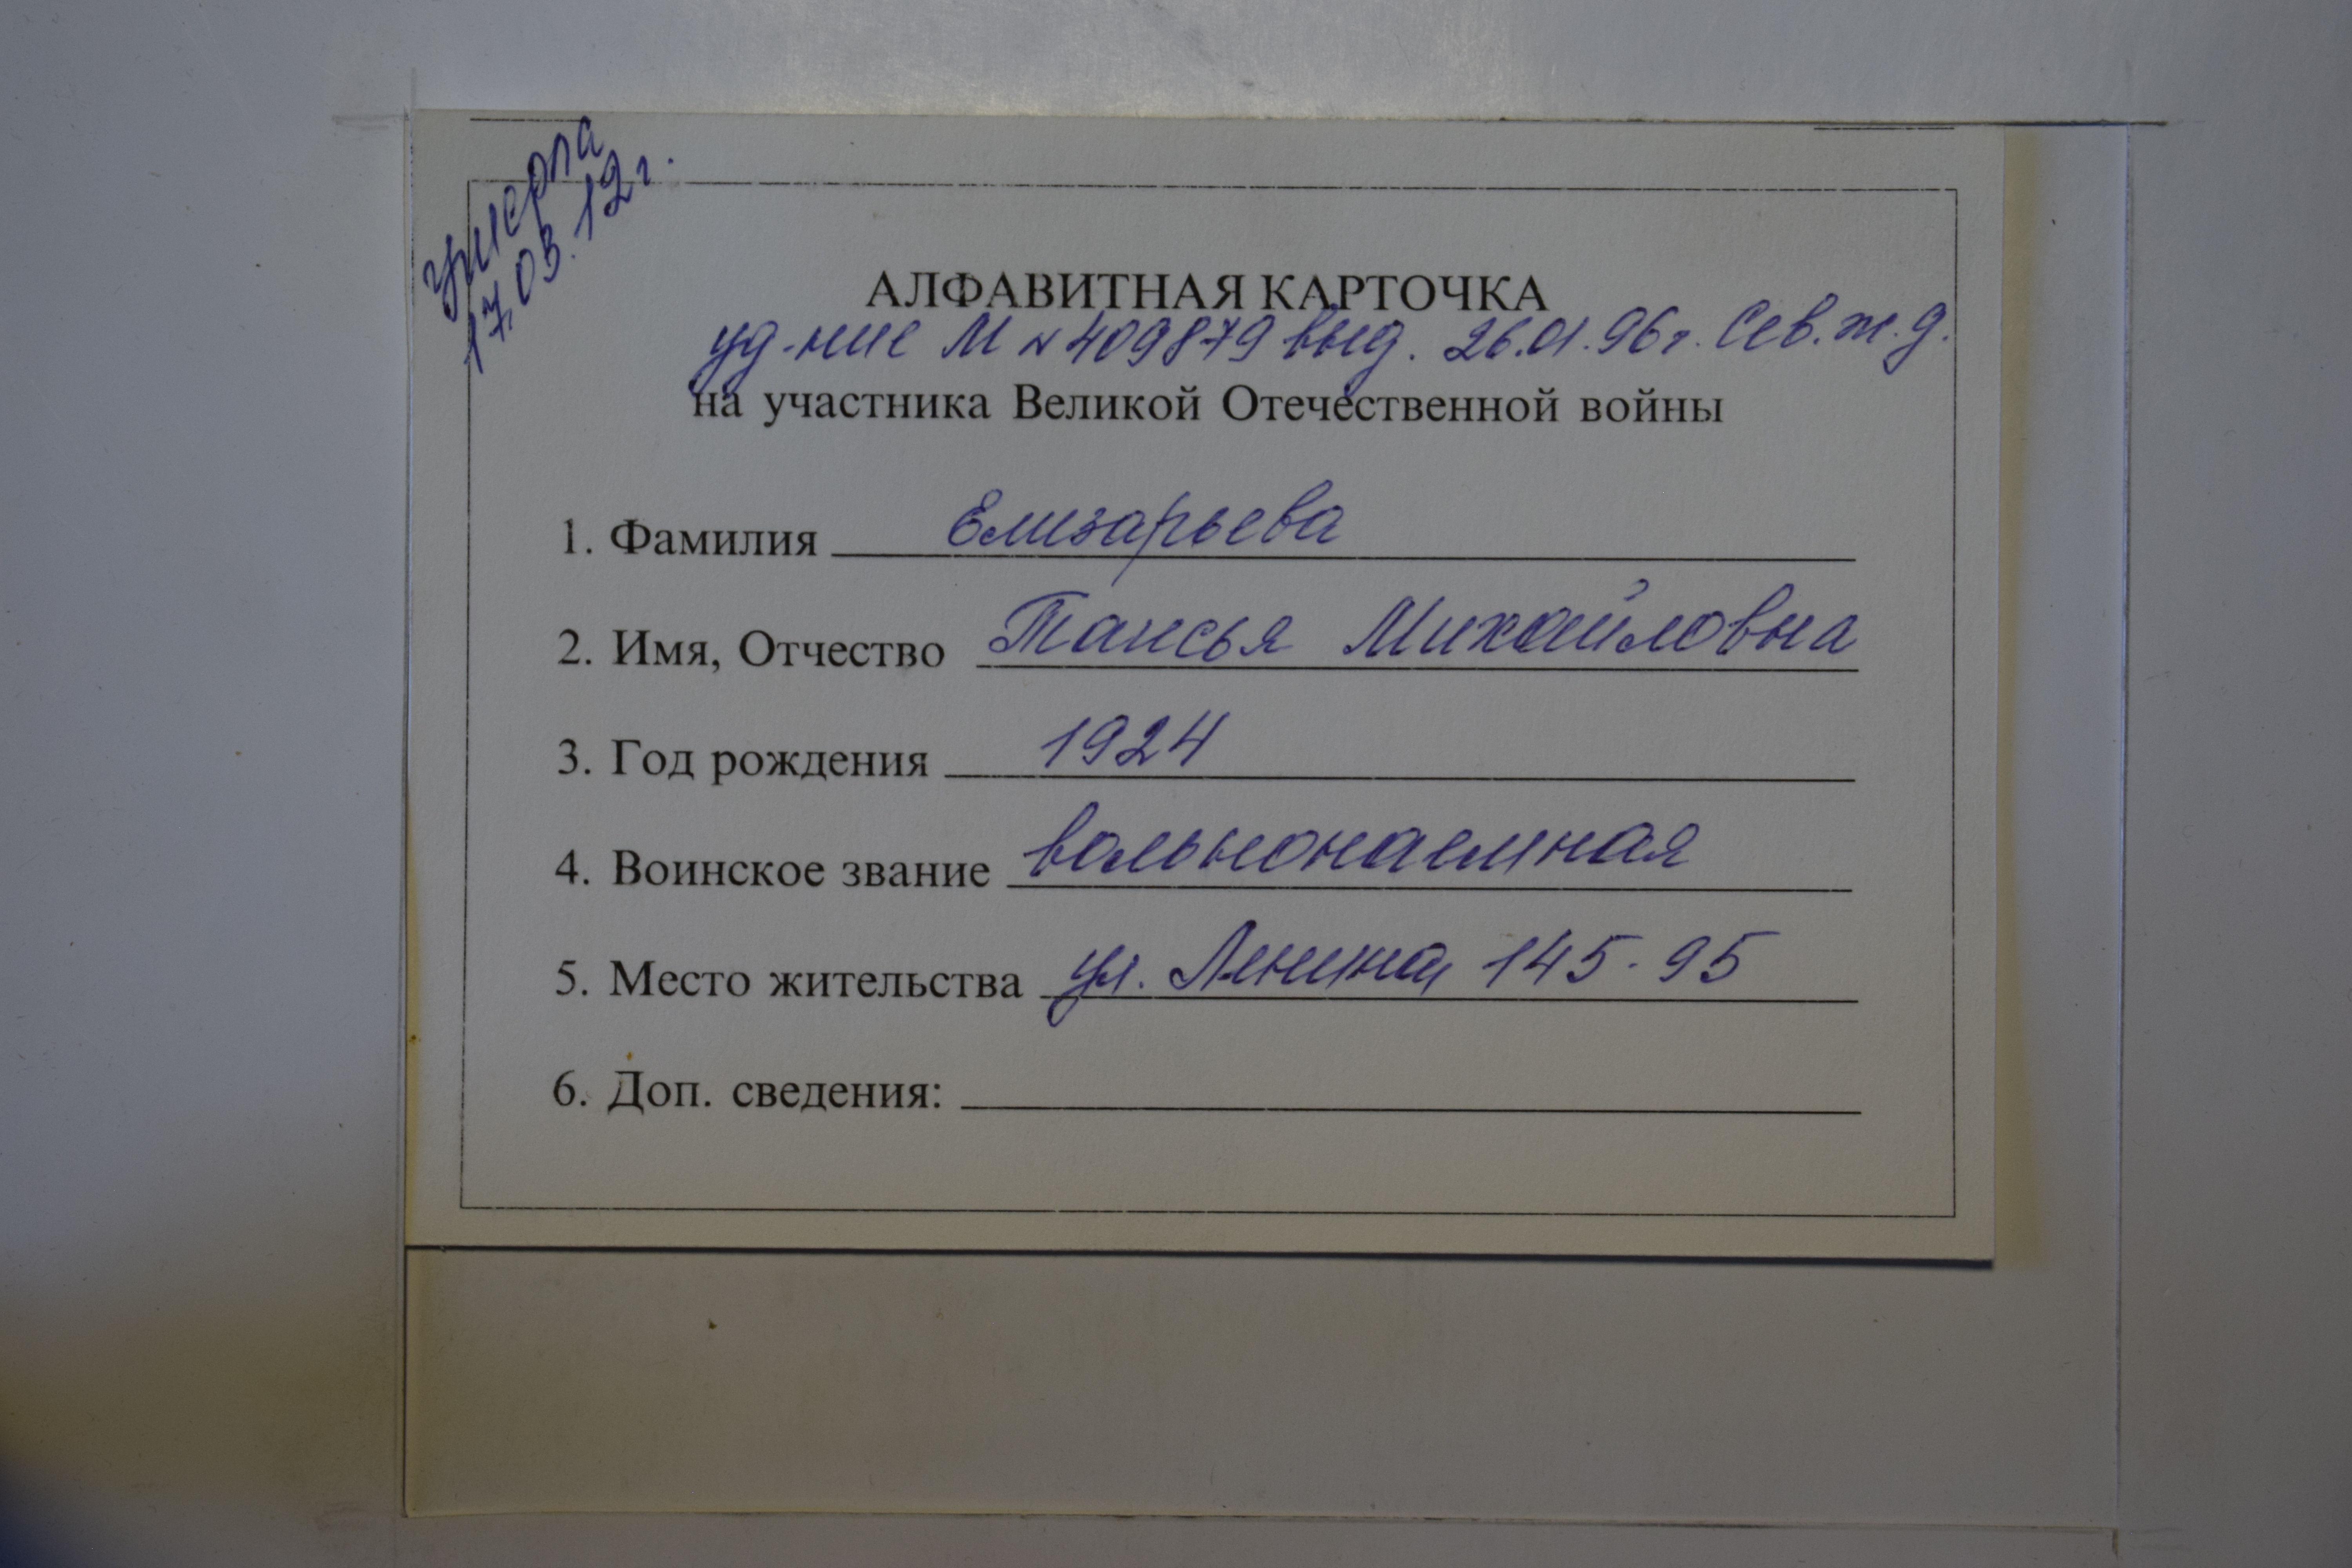 умерла
17.03.12г.
АЛФАВИТНАЯ КАРТОЧКА
уд-ние М № 409879 выд. 26.01.96г. Сев.ж.д.
на участника Великой Отечественной войны
1. Фамилия Елизарьева
2. Имя, Отчество Таисья Михайловна
3. Год рождения 1924
4. Воинское звание вольнонаемная
5. Место жительства ул. Ленина, 145-95
6. Доп. сведения: